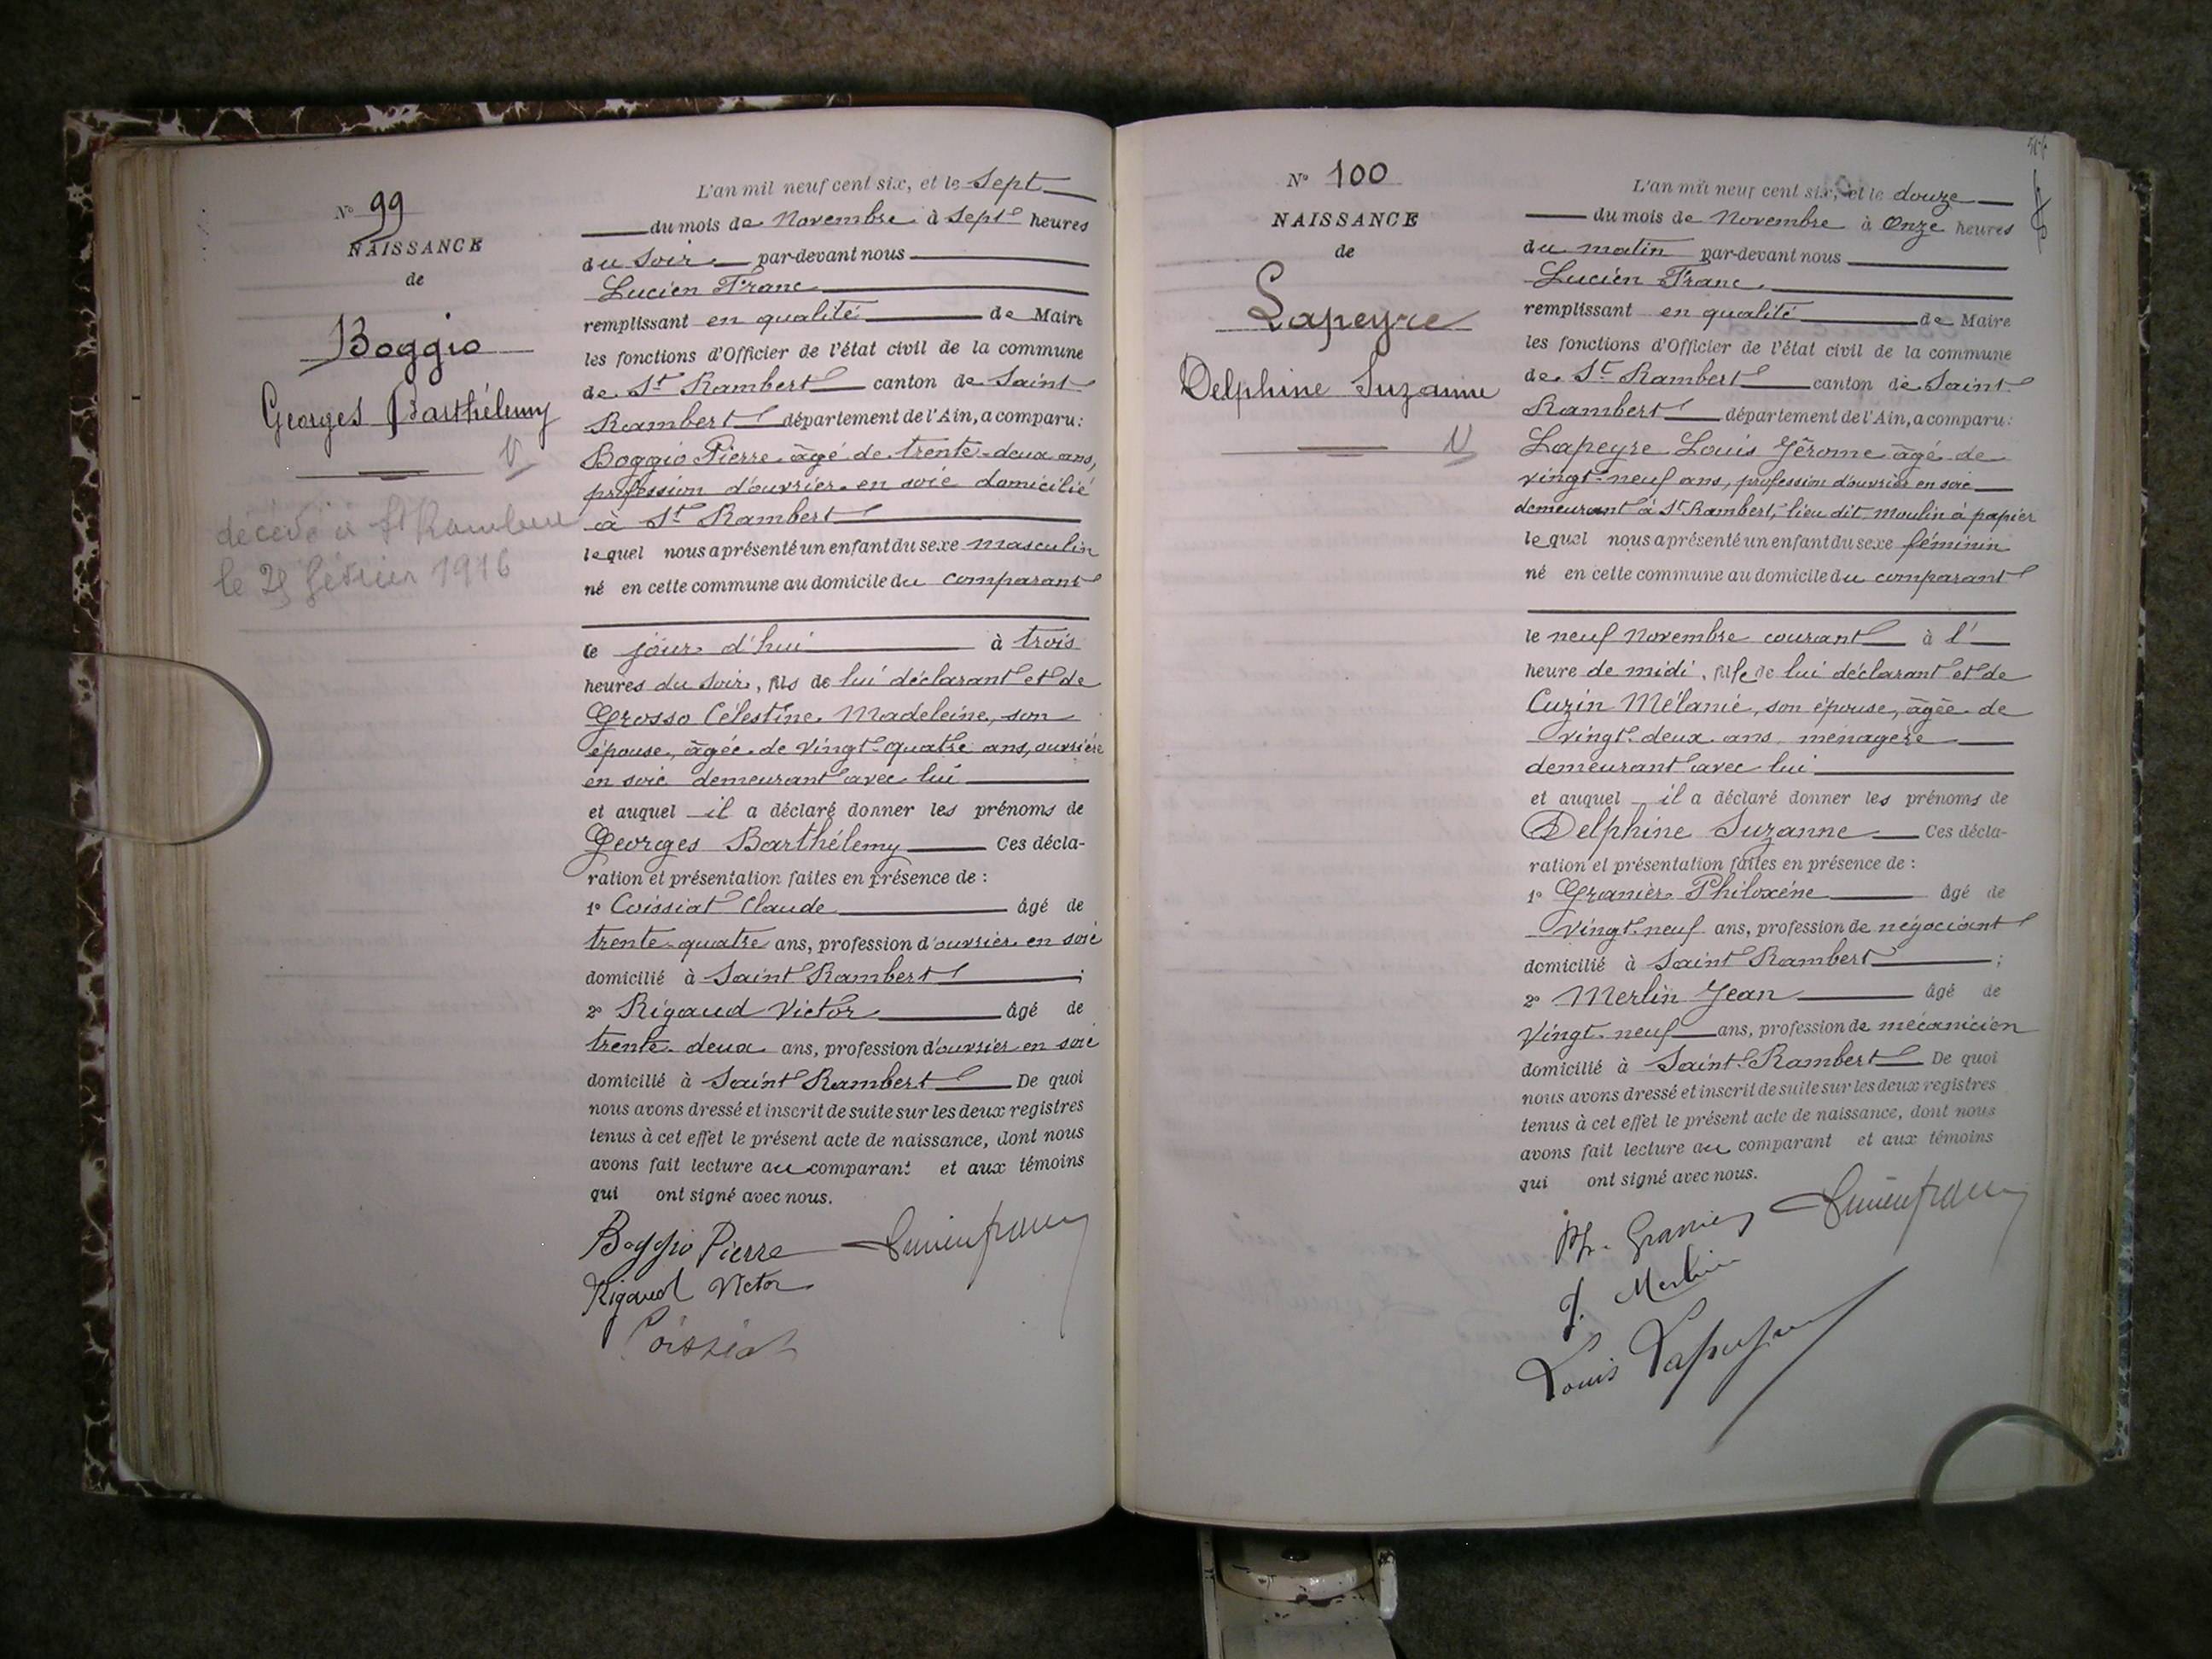 Nº 99
NAISSANCE
de
Boggio
Georges Barthélemy
V
décédé à St Rambert
le février 1916
L'an mil neuf cent six, et le Sept
du mois de Novembre à Sept heures
du Soir par-devant nous
Lucien Franc
remplissant en qualité de Maire
les fonctions d'Officier de l'état civil de la commune
de St Rambert canton de Saint
Rambert département de l'Ain, a comparu:
Boggio Pierre âgé de trente-deux ans,
profession d'ouvrier en soie domicilié
à St Rambert
lequel nous a présenté un enfant du sexe masculin
né en cette commune au domicile du comparant
ce jour d'hui à trois
heures du soir, fils de lui déclarant et de
Grosso Célestine Madeleine, son
épouse, âgée de vingt-quatre ans, ouvrière
en soie demeurant avec lui
et auquel il a déclaré donner les prénoms de
Georges Barthélemy Ces décla-
ration et présentation faites en présence de :
1º Coissiat Claude âgé de
trente-quatre ans, profession d'ouvrier en soie
domicilié à Saint Rambert ;
2º Rigaud Victor âgé de
trente-deux ans, profession d'ouvrier en soie
domicilié à Saint Rambert De quoi
nous avons dressé et inscrit de suite sur les deux registres
tenus à cet effet le présent acte de naissance, dont nous
avons fait lecture au comparant et aux témoins
qui ont signé avec nous.
Boggio Pierre Lucien Franc
Rigaud Victor
Coissiat
Nº 100
NAISSANCE
de
Lapeyre
Delphine Suzanne
V
L'an mil neuf cent six, et le douze
du mois de Novembre à Onze heures
du matin par-devant nous
Lucien Franc
remplissant en qualité de Maire
les fonctions d'Officier de l'état civil de la commune
de St Rambert canton de Saint
Rambert département de l'Ain, a comparu:
Lapeyre Louis Jérome âgé de
vingt-neuf ans, profession d'ouvrier en soie
demeurant à St Rambert, lieu dit, moulin à papier
lequel nous a présenté un enfant du sexe féminin
né en cette commune au domicile du comparant
le neuf Novembre courant à l'
heure de midi, fille de lui déclarant et de
Cuzin Mélanie, son épouse, âgée de
vingt-deux ans ménagère
demeurant avec lui
et auquel il a déclaré donner les prénoms de
Delphine Suzanne Ces décla-
ration et présentation faites en présence de :
1º Granier Philoxène âgé de
vingt-neuf ans, profession de négociant
domicilié à Saint Rambert ;
2º Merlin Jean âgé de
Vingt-neuf ans, profession de mécanicien
domicilié à Saint-Rambert De quoi
nous avons dressé et inscrit de suite sur les deux registres
tenus à cet effet le présent acte de naissance, dont nous
avons fait lecture au comparant et aux témoins
qui ont signé avec nous.
Ph. Granier Lucien Franc
J. Merlin
Louis Lapeyre